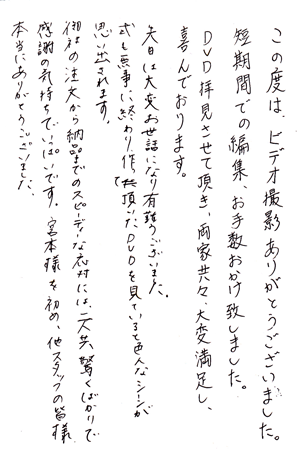 この度は、ビデオ撮影ありがとうございました。
短期間での編集、お手数おかけ致しました。
DVD拝見させて頂き、両家共々、大変満足し、
喜んでおります。
当日は大変お世話になり有難うございました。
式も無事に終わり、作って頂いたDVDを見ていると色んなシーンが
思い出されます。
御社の注文から納品までのスピーディな応対には、二人共、驚くばかりで
感謝の気持ちでいっぱいです。宮本様を初め、他スタッフの皆様
本当にありがとうございました。